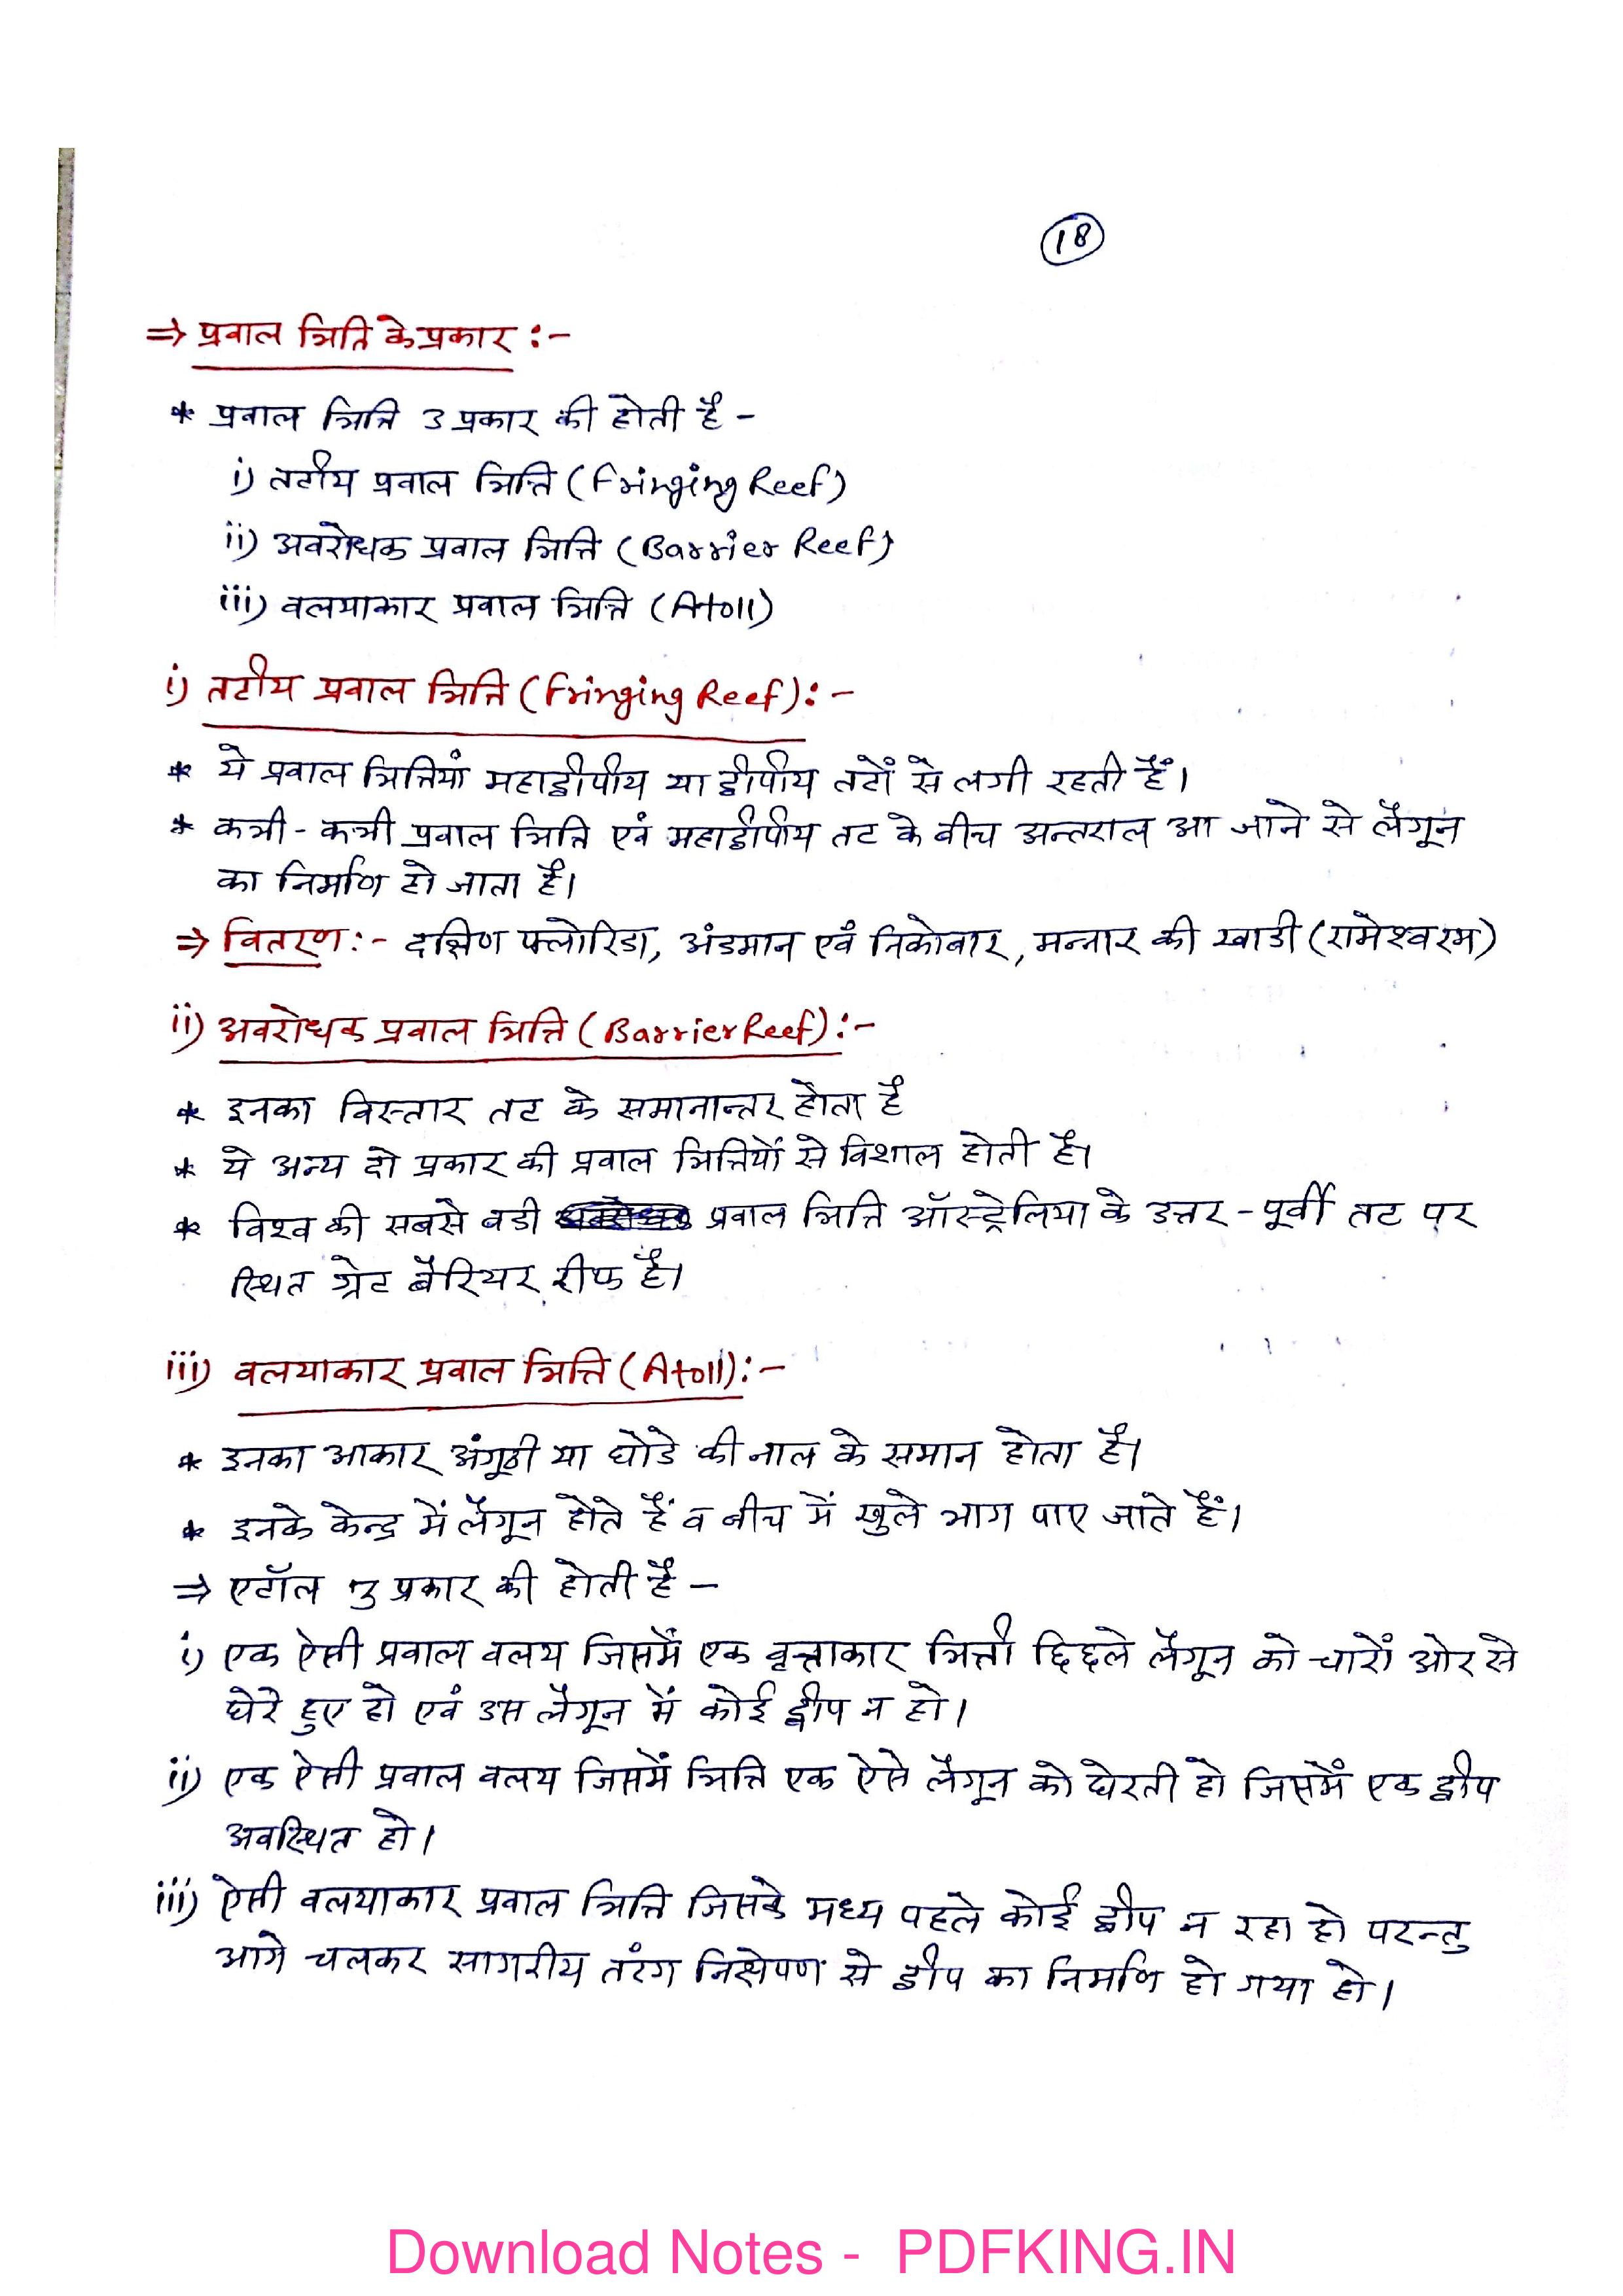 18
⇒ प्रवाल भित्ति के प्रकार :-
* प्रवाल भित्ति 3 प्रकार की होती है -
i) तटीय प्रवाल भित्ति (Fringing Reef)
ii) अवरोधक प्रवाल भित्ति (Barrier Reef)
iii) वलयाकार प्रवाल भित्ति (Atoll)
i) तटीय प्रवाल भित्ति (Fringing Reef) :-
* ये प्रवाल भित्तियां महाद्वीपीय या द्वीपीय तटों से लगी रहती हैं।
* कभी - कभी प्रवाल भित्ति एवं महाद्वीपीय तट के बीच अन्तराल आ जाने से लैगून
का निर्माण हो जाता है।
⇒ वितरण :- दक्षिण फ्लोरिडा, अंडमान एवं निकोबार, मन्नार की खाडी (रामेश्वरम)
ii) अवरोधक प्रवाल भित्ति (Barrier Reef) :-
* इनका विस्तार तट के समानान्तर होता है
* ये अन्य दो प्रकार की प्रवाल भित्तियों से विशाल होती है।
* विश्व की सबसे बडी प्रवाल भित्ति ऑस्ट्रेलिया के उत्तर - पूर्वी तट पर
स्थित ग्रेट बैरियर रीफ है।
iii) वलयाकार प्रवाल भित्ति (Atoll) :-
* इनका आकार अंगूठी या घोडे की नाल के समान होता है।
* इनके केन्द्र में लैगून होते हैं व बीच में खुले भाग पाए जाते हैं।
⇒ एटॉल 3 प्रकार की होती है -
i) एक ऐसी प्रवाल वलय जिसमें एक वृत्ताकार भित्ती छिछले लैगून को चारों ओर से
घेरे हुए हो एवं उस लैगून में कोई द्वीप न हो।
ii) एक ऐसी प्रवाल वलय जिसमें भित्ति एक ऐसे लैगून को घेरती हो जिसमें एक द्वीप
अवस्थित हो।
iii) ऐसी वलयाकार प्रवाल भित्ति जिसके मध्य पहले कोई द्वीप न रहा हो परन्तु
आगे चलकर सागरीय तरंग निक्षेपण से द्वीप का निर्माण हो गया हो।
Download Notes - PDFKING.IN